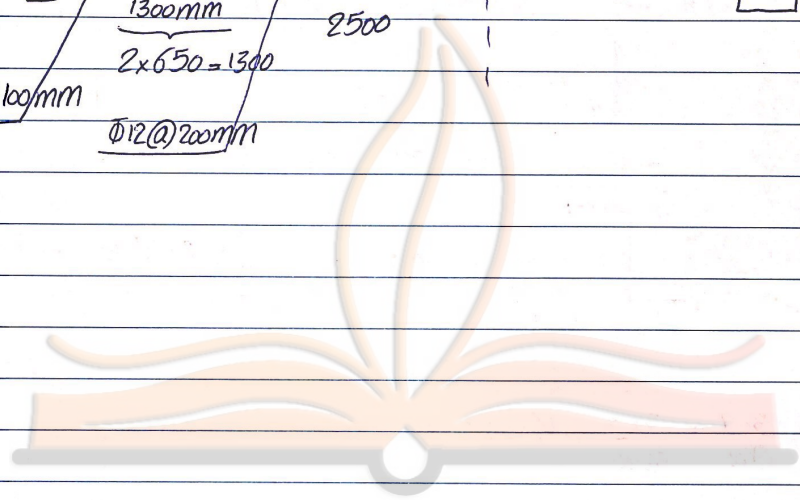 1300mm
2500
2x650=1300
100mm
Φ12@200mm